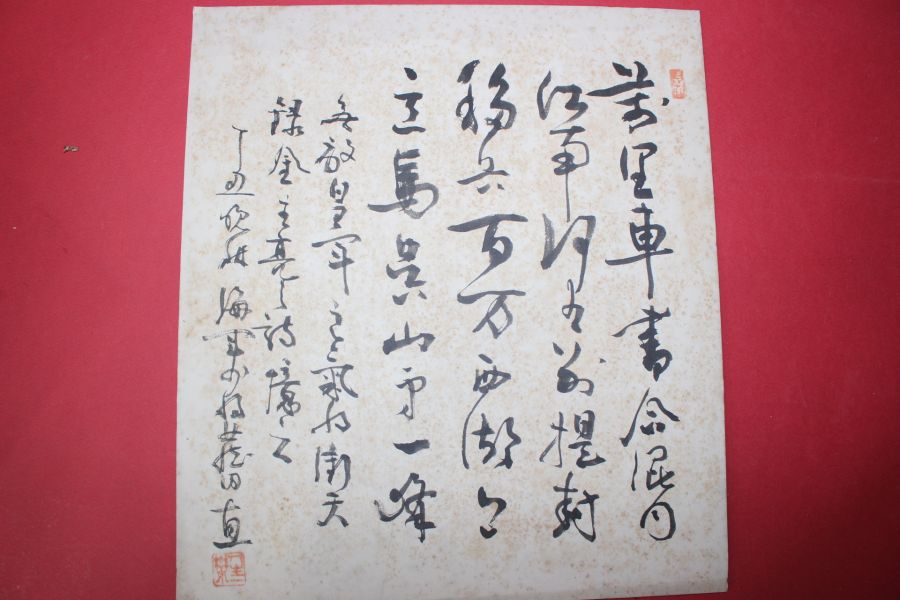 萬里車書合混同
江南何有別提封
移兵百万西湖上
立馬吳山第一峰
無敵皇軍氣将衝天
録金主亮之詩
丁丑晩秋 海軍少将田直